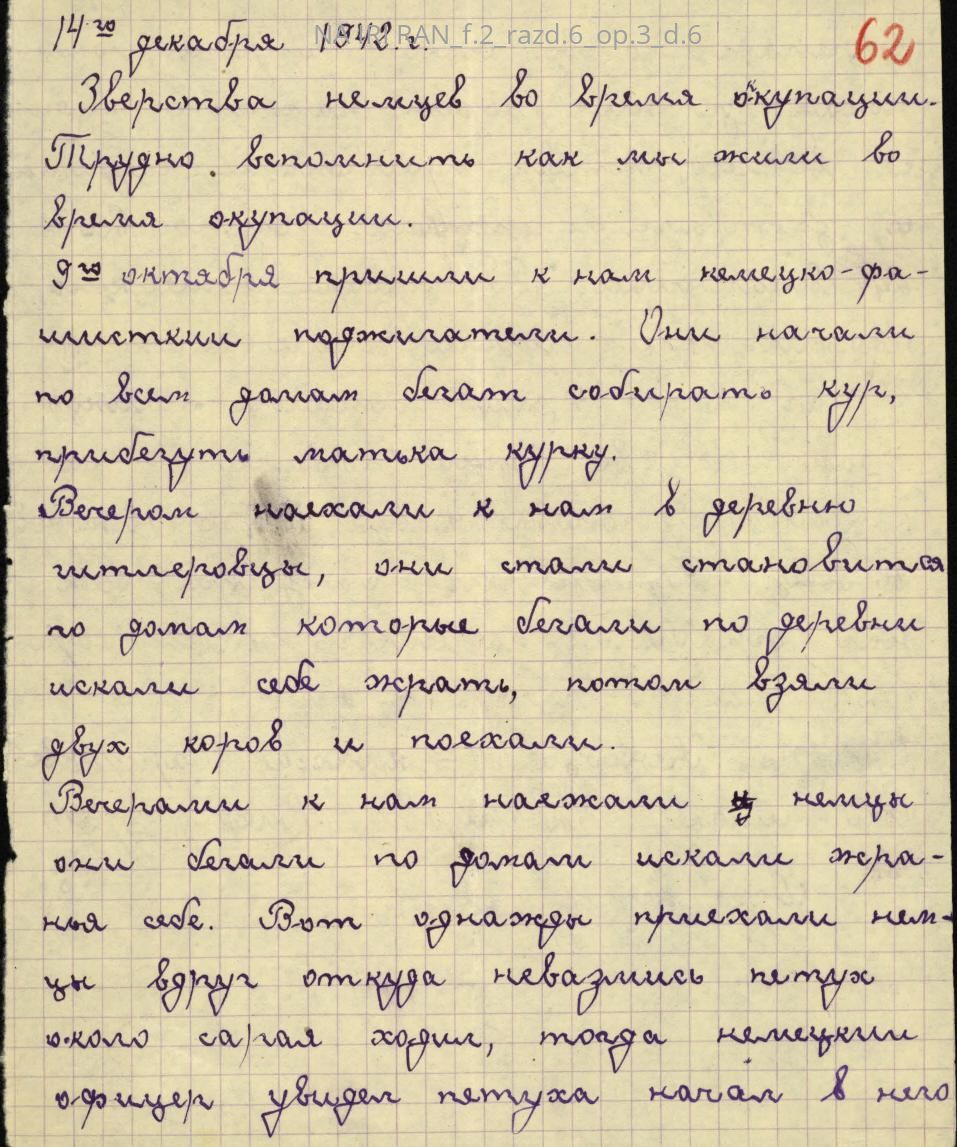 14го декабря 1942.г.
NA IRI RAN_f.2_razd.6_op.3_d.6
62
Зверства немцев во время окупации.
Трудно вспомнить как мы жили во
время окупации.
9го октября пришли к нам немецко-фа-
шисткии поджигатели. Они начали
по всем домам бегат собирать кур,
прибегуть матька курку.
Вечером наехали к нам в деревню
гитлеровцы, они стали становится
по домам которые бегали по деревни
искали себе жрать, потом взяли
двух коров и поехали.
Вечерами к нам наежали немцы
они бегали по домали искали жра-
нья себе. Вот однажды приехали нем-
цы вдруг откуда невазмись петух
около сарая ходил, тогда немецкии
офицер увидел петуха начал в него